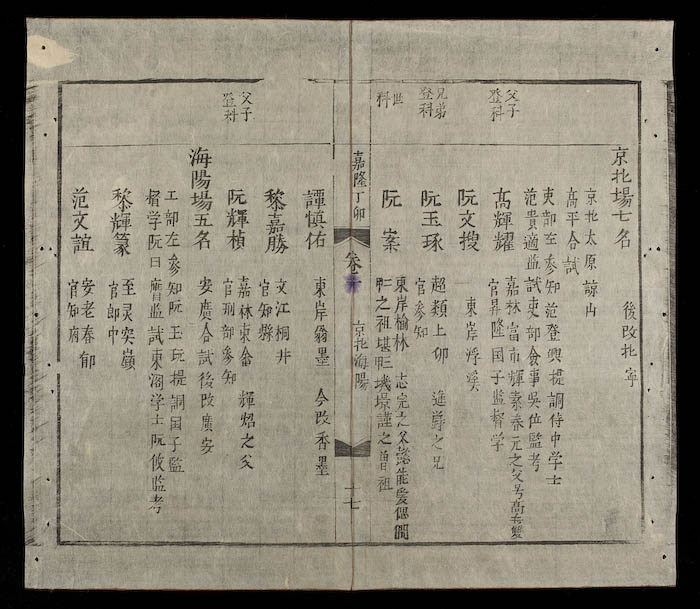 京北場七名 後改北寧
京北太原諒山
高平合試
吏部左参知范登興提調侍中学士
范貴適監試吏部僉事吳位監考
父子
登科
高輝耀 嘉林富市輝素春元之父
官昇隆国子監督学
阮文搜 東岸浮溪
兄弟
登科
阮玉琢 超類上卯 進爵之兄
官参知
世
科
阮案 東岸榆林 志完之父
之曽祖
嘉隆丁卯
卷
京北海陽
十七
譚慎佑 東岸翁墨 今改香墨
黎嘉勝 文江桐井
官知縣
父子
登科
阮輝楨 嘉林東侖 輝炤之父
官刑部参知
海陽場五名 安廣合試後改廣安
工部左参知阮玉玩提調国子監
督学阮曰膺監試東阁学士阮攸监考
黎輝篆 至灵突嶺
官郎中
范文誼 安老春郁
官知府